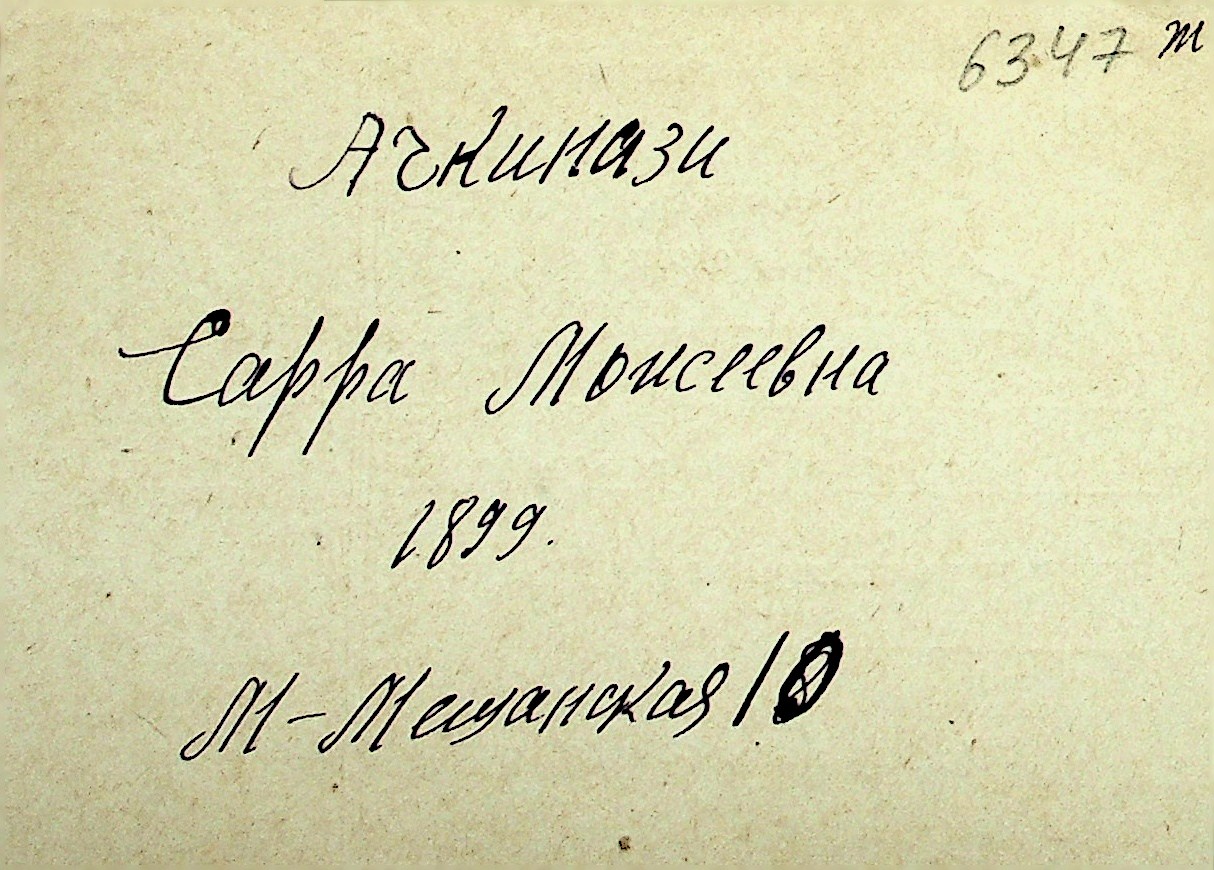 6347 т
Ачкинази
Сарра Моисеевна
1899.
М-Мещанская 10